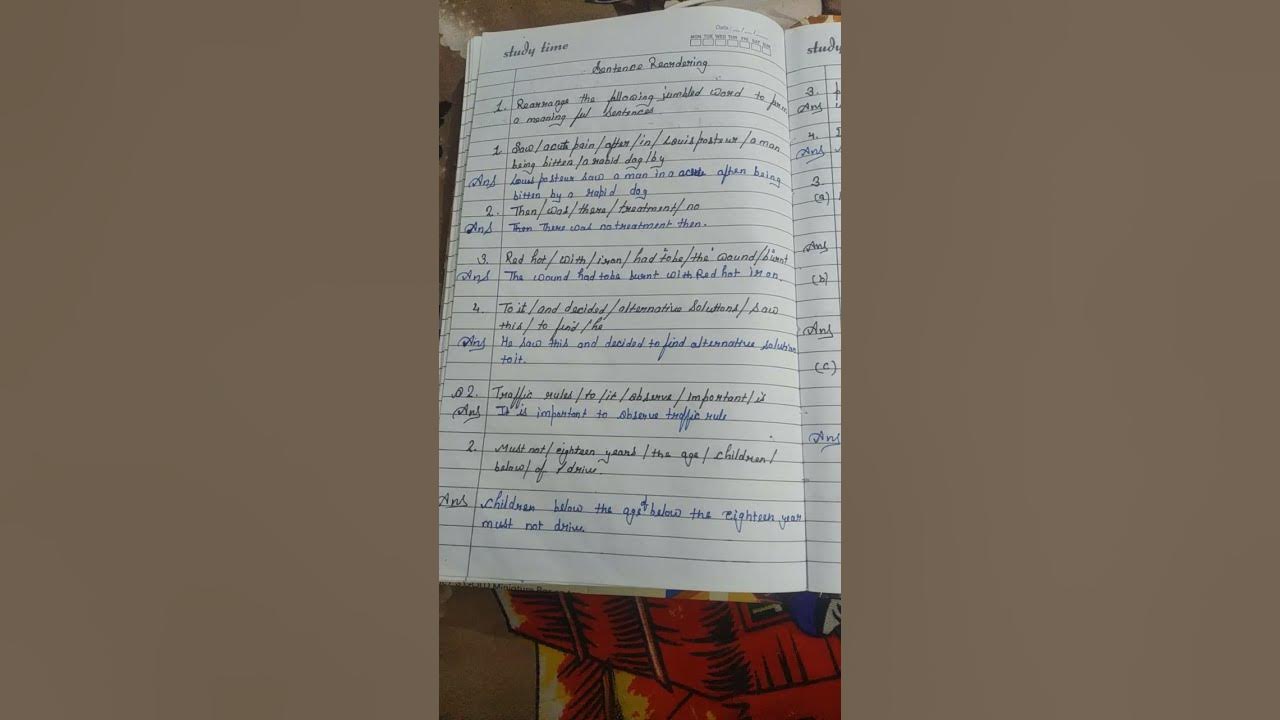 study time
Date : __/__/__
MON TUE WED THU FRI SAT SUN
Sentence Reordering
1. Rearrange the following jumbled word to form
a meaning ful sentences
1. Saw/acute pain/after/in/Louis pasteur/a man
being bitten/a rabid dog/by
Ans Louis pasteur saw a man in a acute after being
bitten by a rapid dog
2. Then/was/there/treatment/no
Ans Then There was no treatment then.
3. Red hot/with/iron/had to be/the wound/burnt
Ans The wound had to be burnt with Red hot iron.
4. To it/and decided/alternative solutions/saw
this/to find/he
Ans He saw this and decided to find alternative solution
to it.
Q2. Traffic rules/to/it/observe/important/is
Ans It is important to observe traffic rule
2. Must not/eighteen years/the age/children/
below/of/drive.
Ans Children below the age of below the eighteen year
must not drive.
study
3.
Ans
4.
Ans
3
(a)
Ans
(b)
Ans
(c)
Ans